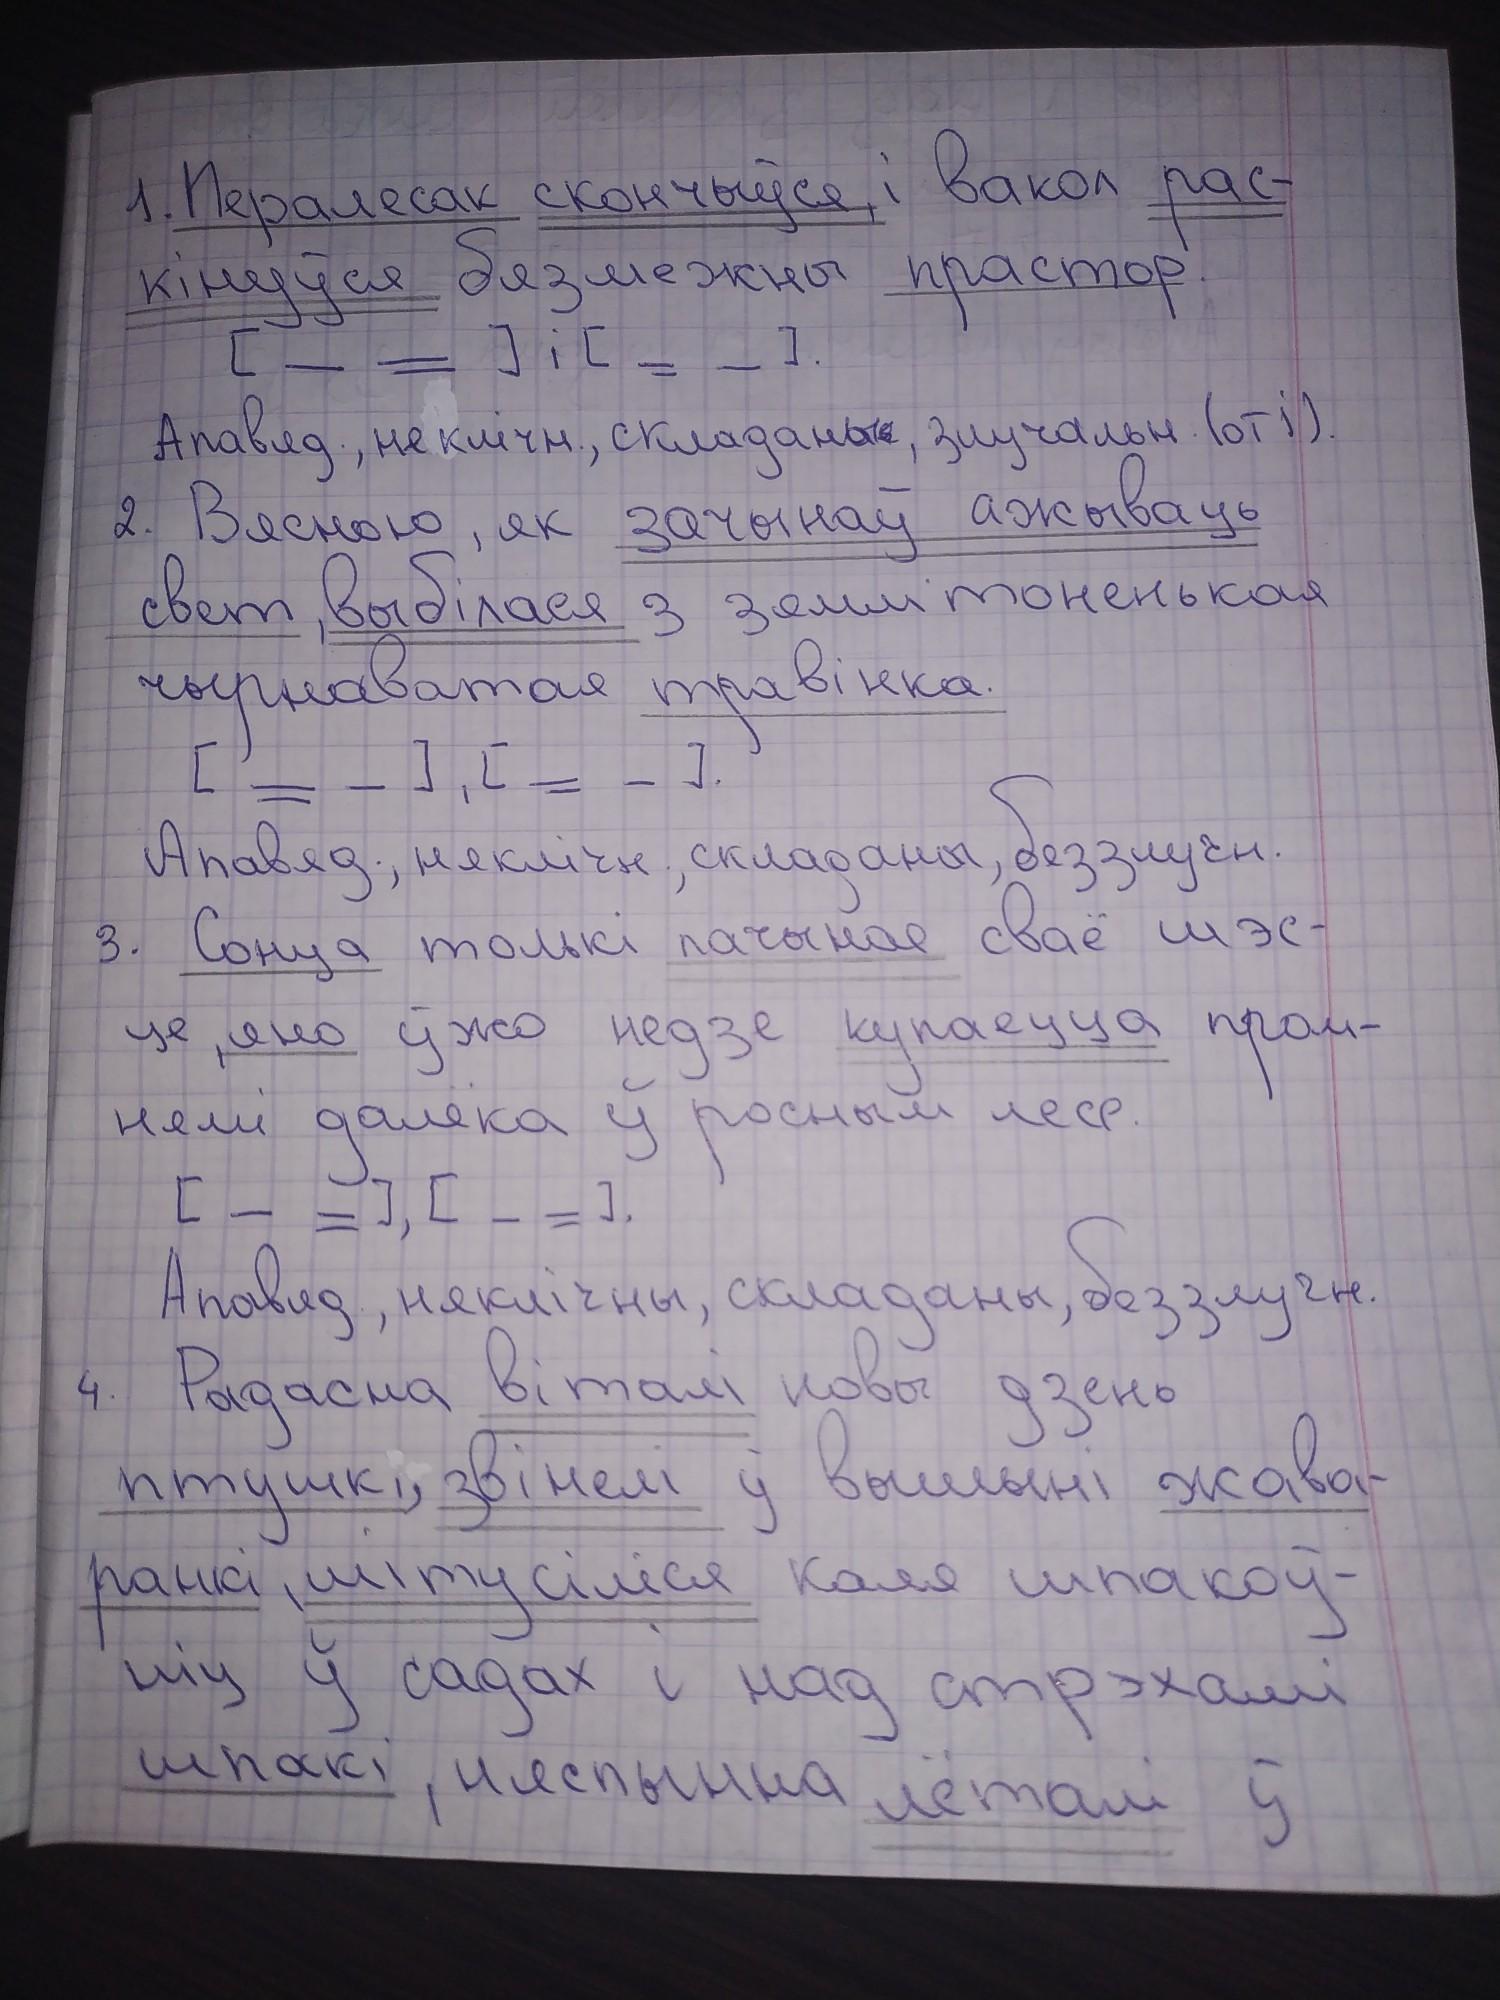 1. Пералесак скончыўся, і вакол рас-
кінуўся бязмежны прастор.
[ — = ] і [ = — ].
Апавяд., неклічн., складаны, злучальн. (от і).
2. Вясною, як зачынаў ажываць
свет, выбілася з зямлі тоненькая
чырнаватая травінка.
[ = — ], [ = — ].
Апавяд., няклічн., складаны, беззлучн.
3. Сонца толькі пачынае сваё шэс-
це, яно ўжо недзе купаецца пром-
нямі далёка ў росным лесе.
[ — = ], [ — = ].
Апавяд., няклічны, складаны, беззлучн.
4. Радасна віталі новы дзень
птушкі, звінелі ў вышыні жава-
ранкі, мітусіліся каля шпакоў-
ніц ў садах і над стрэхамі
шпакі, няспынна лёталі ў